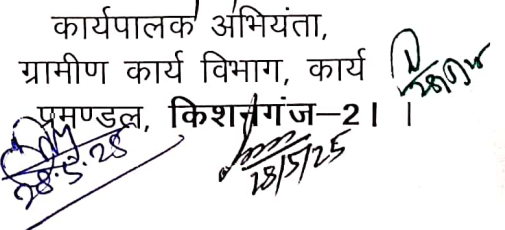 कार्यपालक अभियंता,
ग्रामीण कार्य विभाग, कार्य
प्रमण्डल, किशनगंज–2। ।
28.5.25
28/5/25